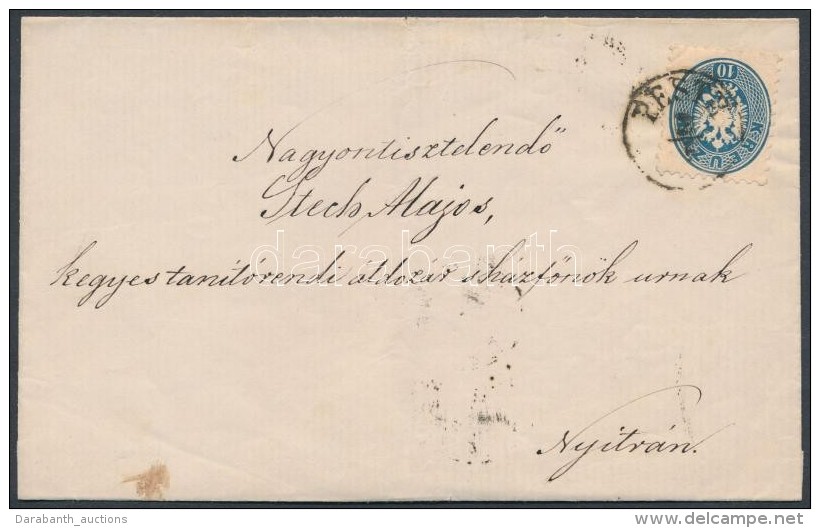 10
KREU
PEST
Nagyontisztelendő
Stech Alajos,
kegyestanítórendi áldozár s házfőnök urnak
darabanth
Nyitrán.
Darabanth_auctions
www.delcampe.net